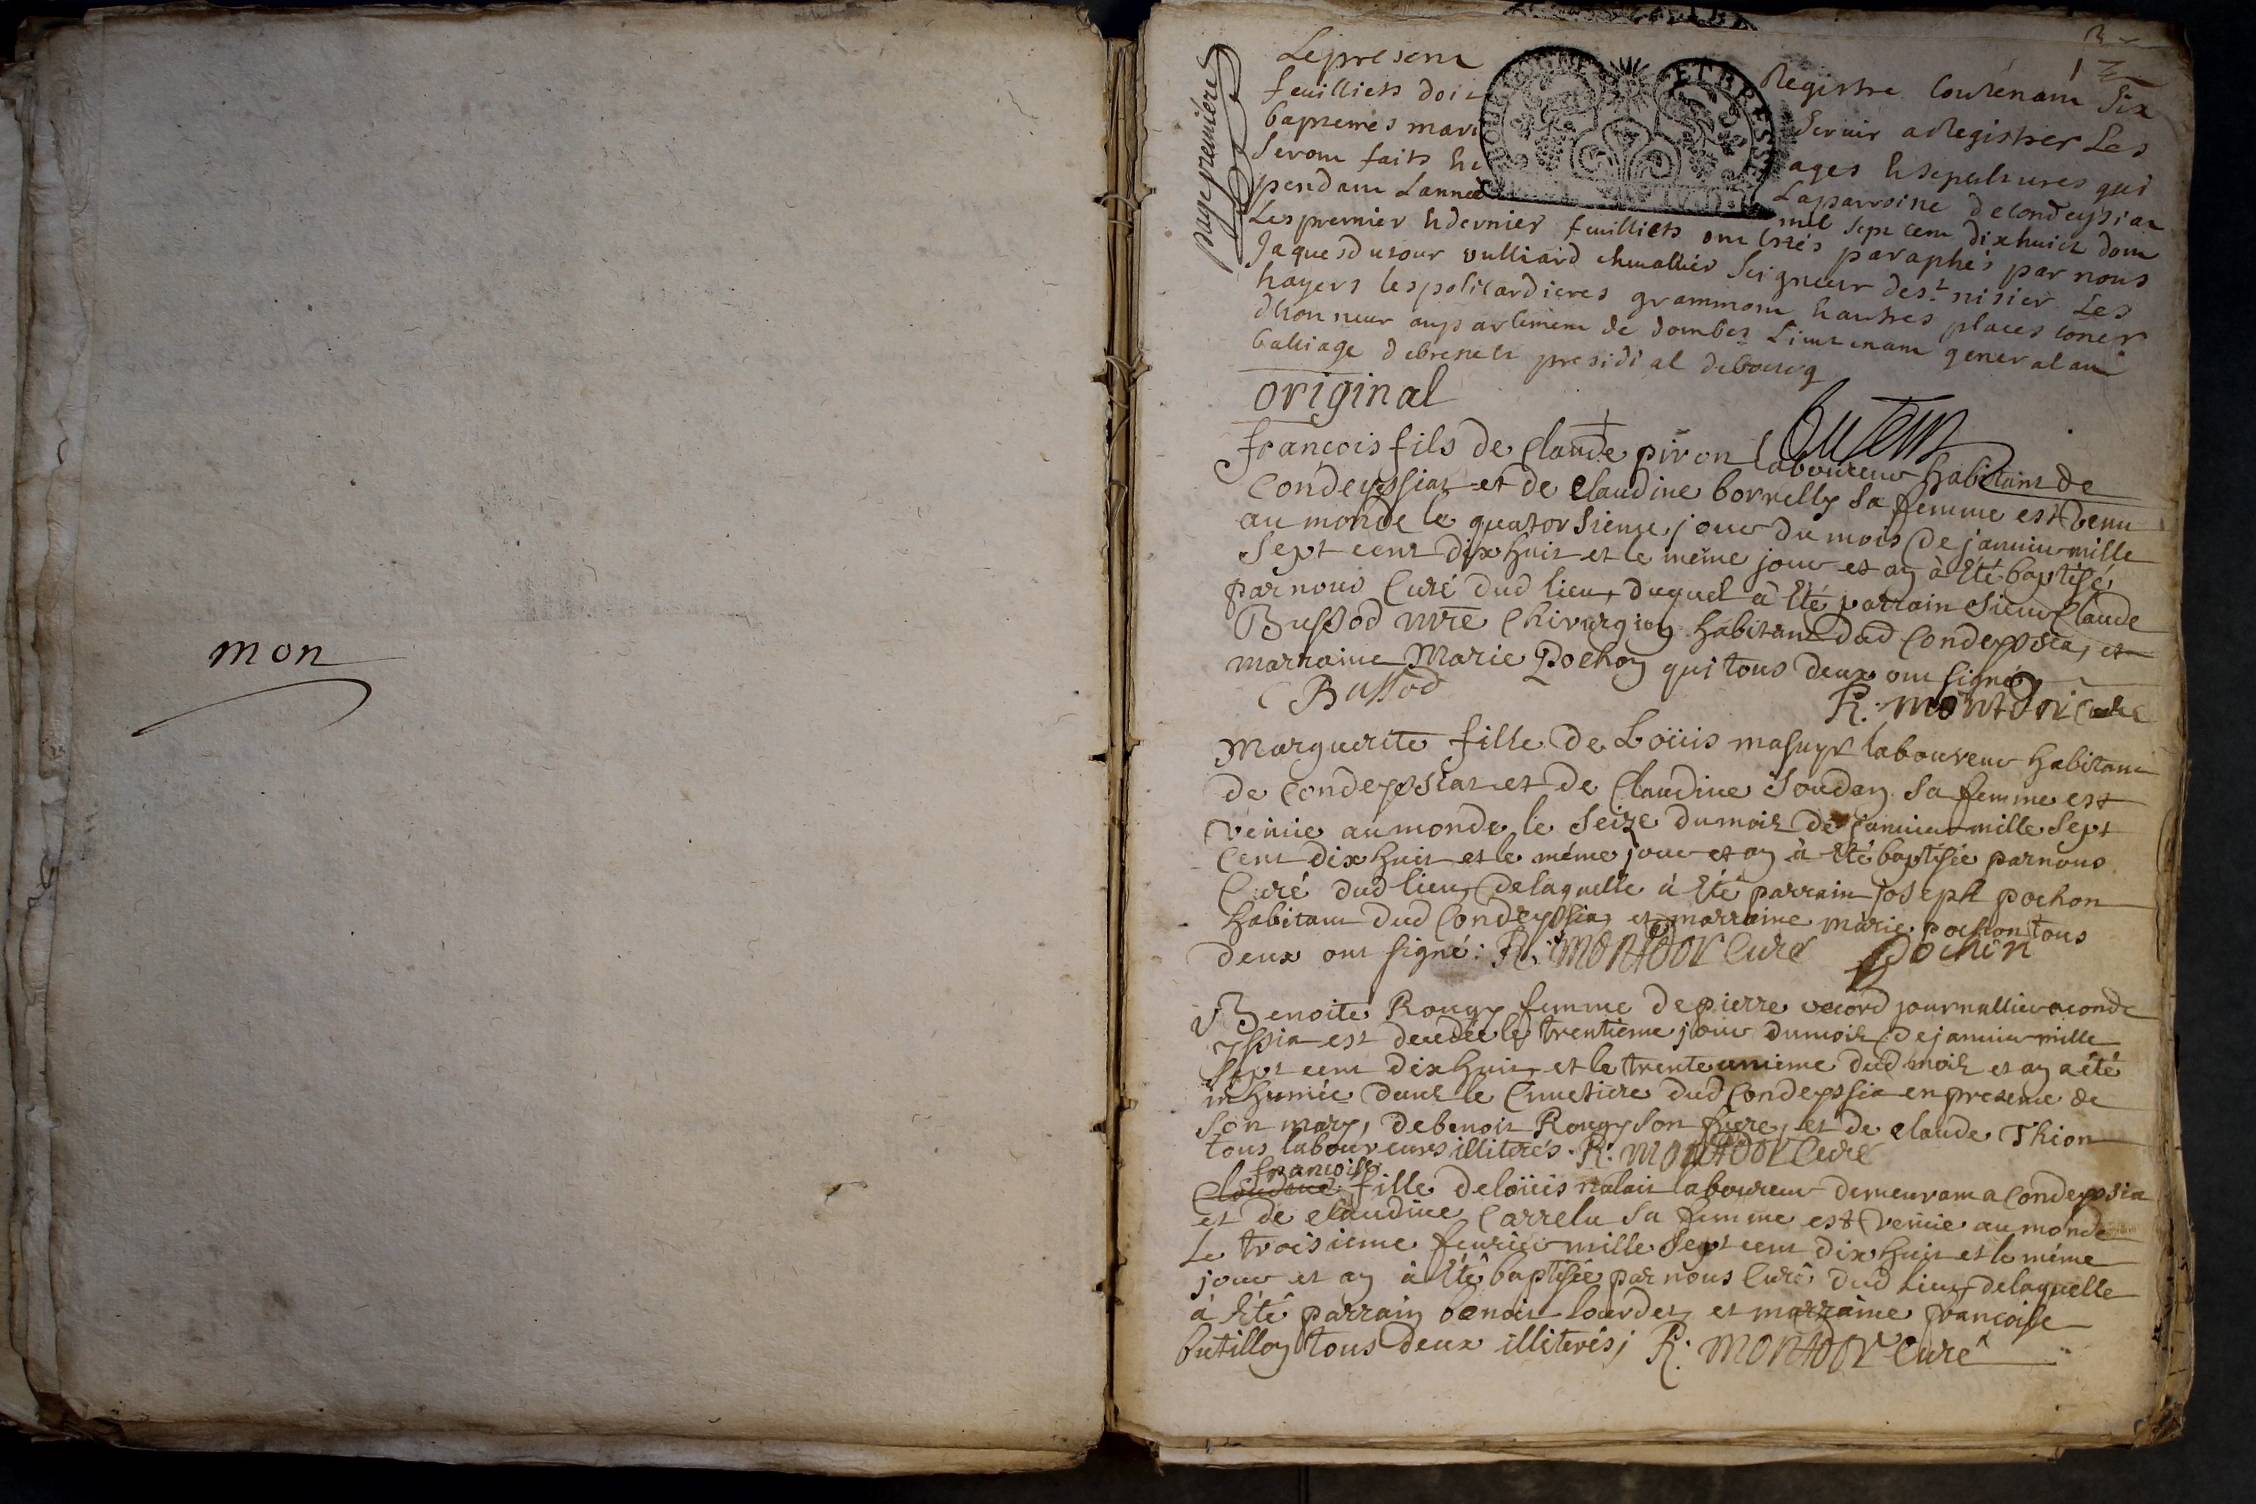 mon
page premiere
Le present Registre Contenant Six
feuilliets doit Servir a Registrer Les
baptemes mariages & sepultures qui
Seront faits en Laparroisse de Condeyssiat
pendant Lannée mil sept cent dixhuict dont
Les premier & dernier feuilliets ont estés paraphés par nous
Jaques dutour vulliard chevallier Seigneur de st nisier Les
hayers les policardieres grammont & autres places coner
dhonneur au parlement de dombes Lieutenant general au
balliage de bresse & presidial de bourg
original
dutour
francois fils de Claude piron laboureur habitant de
Condeyssiat et de Claudine borrelly sa femme est venu
au monde le quatorsieme jour du mois de janvier mille
Sept cent dix huit et le méme jour et an à été baptisé
par nous Curé dud lieu, duquel a été parrain sieur Claude
Bussod mre Chirurgien habitant dud Condeyssia, et
marraine Marie Pochon qui tous deux ont signé
Bussod R. montdor Curé
Marguerite fille de Loüis masuyt laboureur habitant
de Condeyssiat et de Claudine Soudan sa femme est
venüe au monde le Seize du mois de janvier mille Sept
Cent dix huit et le méme jour et an à été baptisée par nous
Curé dud lieu, de laquelle à été parrain joseph pochon
habitant dud Condeyssia, et marraine marie pochon tous
deux ont signé: R. montdor Curé Pochon
Benoite Rougy femme de pierre vecord journallier a conde
yssia est decedée le trentieme jour du mois de janvier mille
Sept cent dix huit, et le trente unieme dud mois et an a été
inhumée dans le Cimetiere dud Condeyssia en presence de
Son mary, de benoit Rougy son frere, et de claude Thion
tous laboureurs illiterés. R. montdor Curé
francoise
Claudine fille de loüis nalait laboureur demeurant a Condeyssia
et de claudine Carrelu sa femme est venüe au monde
Le troisieme fevrier mille Sept cent dix huit et le méme
jour et an à été baptisée par nous Curé dud lieu, de laquelle
à été parrain benoit lourdet, et marraine francoise
butillon tous deux illiterés, R. montdor Curé